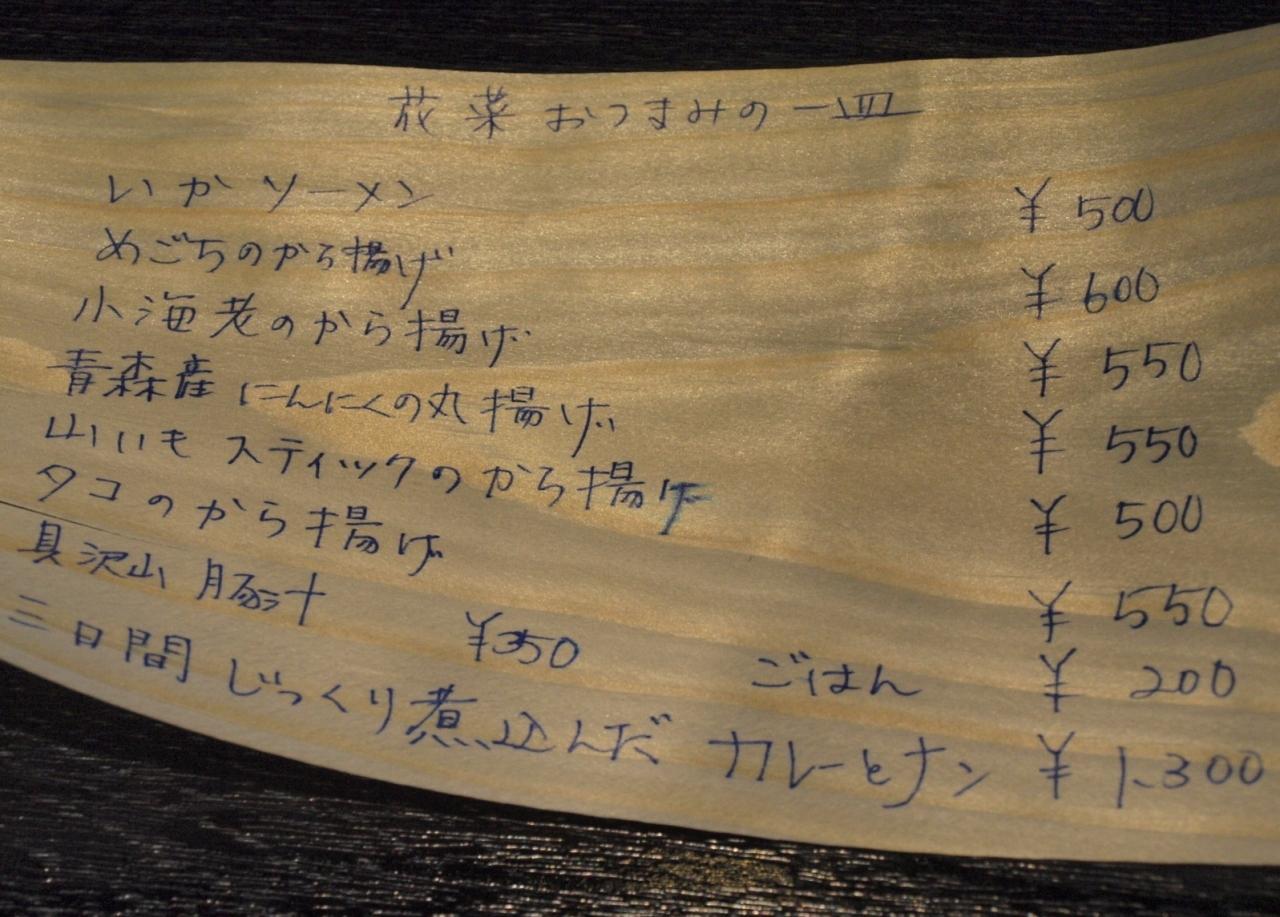 花菜おつまみの一皿
いかソーメン ¥500
めごちのから揚げ ¥600
小海老のから揚げ ¥550
青森産にんにくの丸揚げ ¥550
山いもスティックのから揚げ ¥500
タコのから揚げ ¥550
具沢山豚汁 ¥350 ごはん ¥200
三日間じっくり煮込んだカレーとナン ¥1.300